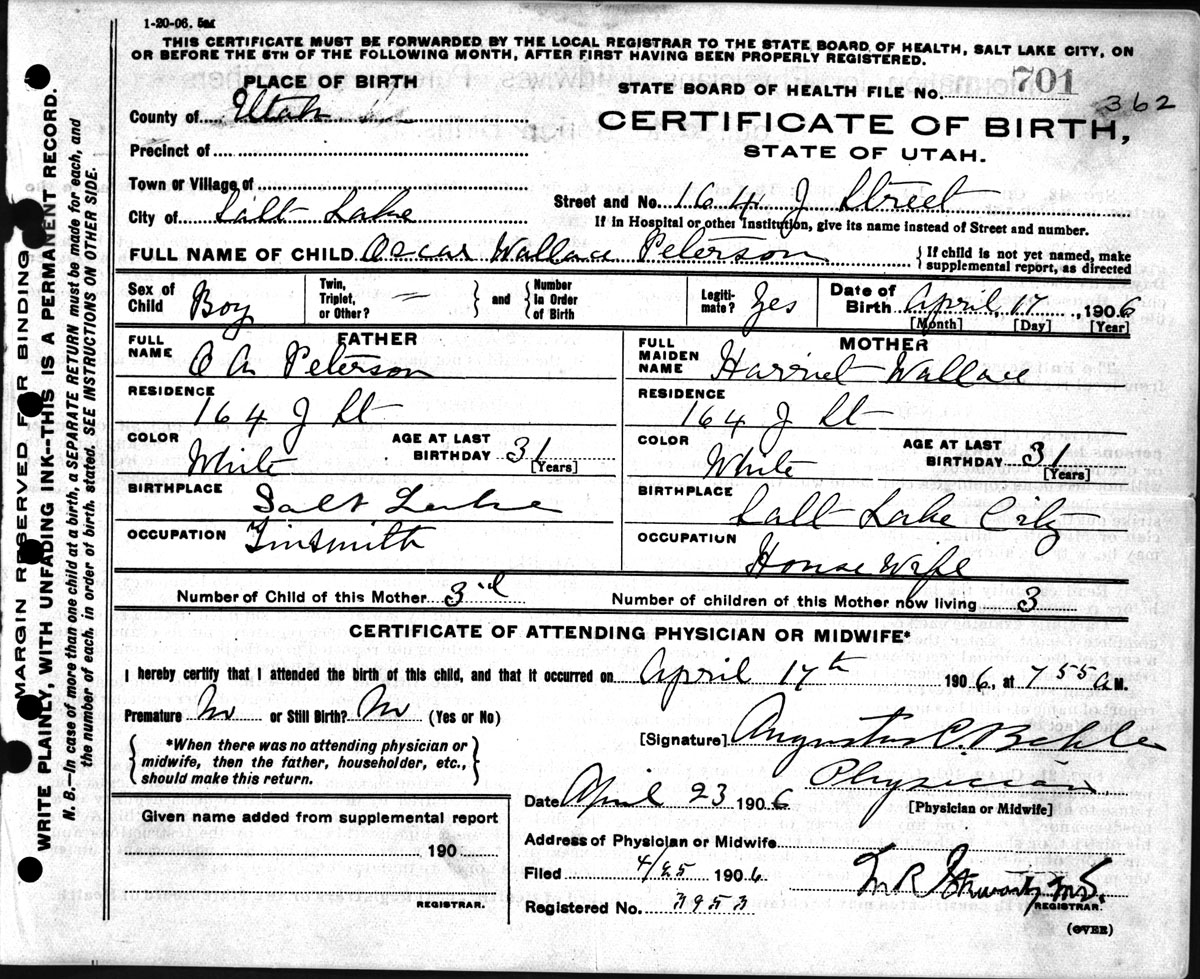 1-20-06. 5m
THIS CERTIFICATE MUST BE FORWARDED BY THE LOCAL REGISTRAR TO THE STATE BOARD OF HEALTH, SALT LAKE CITY, ON
OR BEFORE THE 5TH OF THE FOLLOWING MONTH, AFTER FIRST HAVING BEEN PROPERLY REGISTERED.
PLACE OF BIRTH
STATE BOARD OF HEALTH FILE No. 701
362
County of Utah
CERTIFICATE OF BIRTH,
STATE OF UTAH.
Precinct of
Town or Village of
City of Salt Lake
Street and No. 164 J Street
If in Hospital or other Institution, give its name instead of Street and number.
FULL NAME OF CHILD Oscar Wallace Peterson {If child is not yet named, make supplemental report, as directed
Sex of Child Boy
Twin, Triplet, or Other? =
} and { Number In Order of Birth
Legitimate? Yes
Date of Birth April, 17, 1906
[Month] [Day] [Year]
FATHER
FULL NAME O A Peterson
RESIDENCE 164 J St
COLOR White
AGE AT LAST BIRTHDAY 31
[Years]
BIRTHPLACE Salt Lake
OCCUPATION Tinsmith
MOTHER
FULL MAIDEN NAME Harriet Wallace
RESIDENCE 164 J St
COLOR White
AGE AT LAST BIRTHDAY 31
[Years]
BIRTHPLACE Salt Lake City
OCCUPATION House Wife
Number of Child of this Mother 3rd
Number of children of this Mother now living 3
CERTIFICATE OF ATTENDING PHYSICIAN OR MIDWIFE*
I hereby certify that I attended the birth of this child, and that it occurred on April 17th 1906, at 7 55 a M.
Premature No or Still Birth? No (Yes or No)
{*When there was no attending physician or
midwife, then the father, householder, etc.,
should make this return.}
[Signature] Augustus C. Behle
Physician
[Physician or Midwife]
Date April 23 1906
Given name added from supplemental report
190
REGISTRAR.
Address of Physician or Midwife
Filed 4/25 1906
M R Stewart, M.D.
REGISTRAR.
Registered No. 3953
(OVER)
MARGIN RESERVED FOR BINDING
WRITE PLAINLY, WITH UNFADING INK--THIS IS A PERMANENT RECORD.
N. B.—In case of more than one child at a birth, a SEPARATE RETURN must be made for each, and
the number of each, in order of birth, stated. SEE INSTRUCTIONS ON OTHER SIDE.